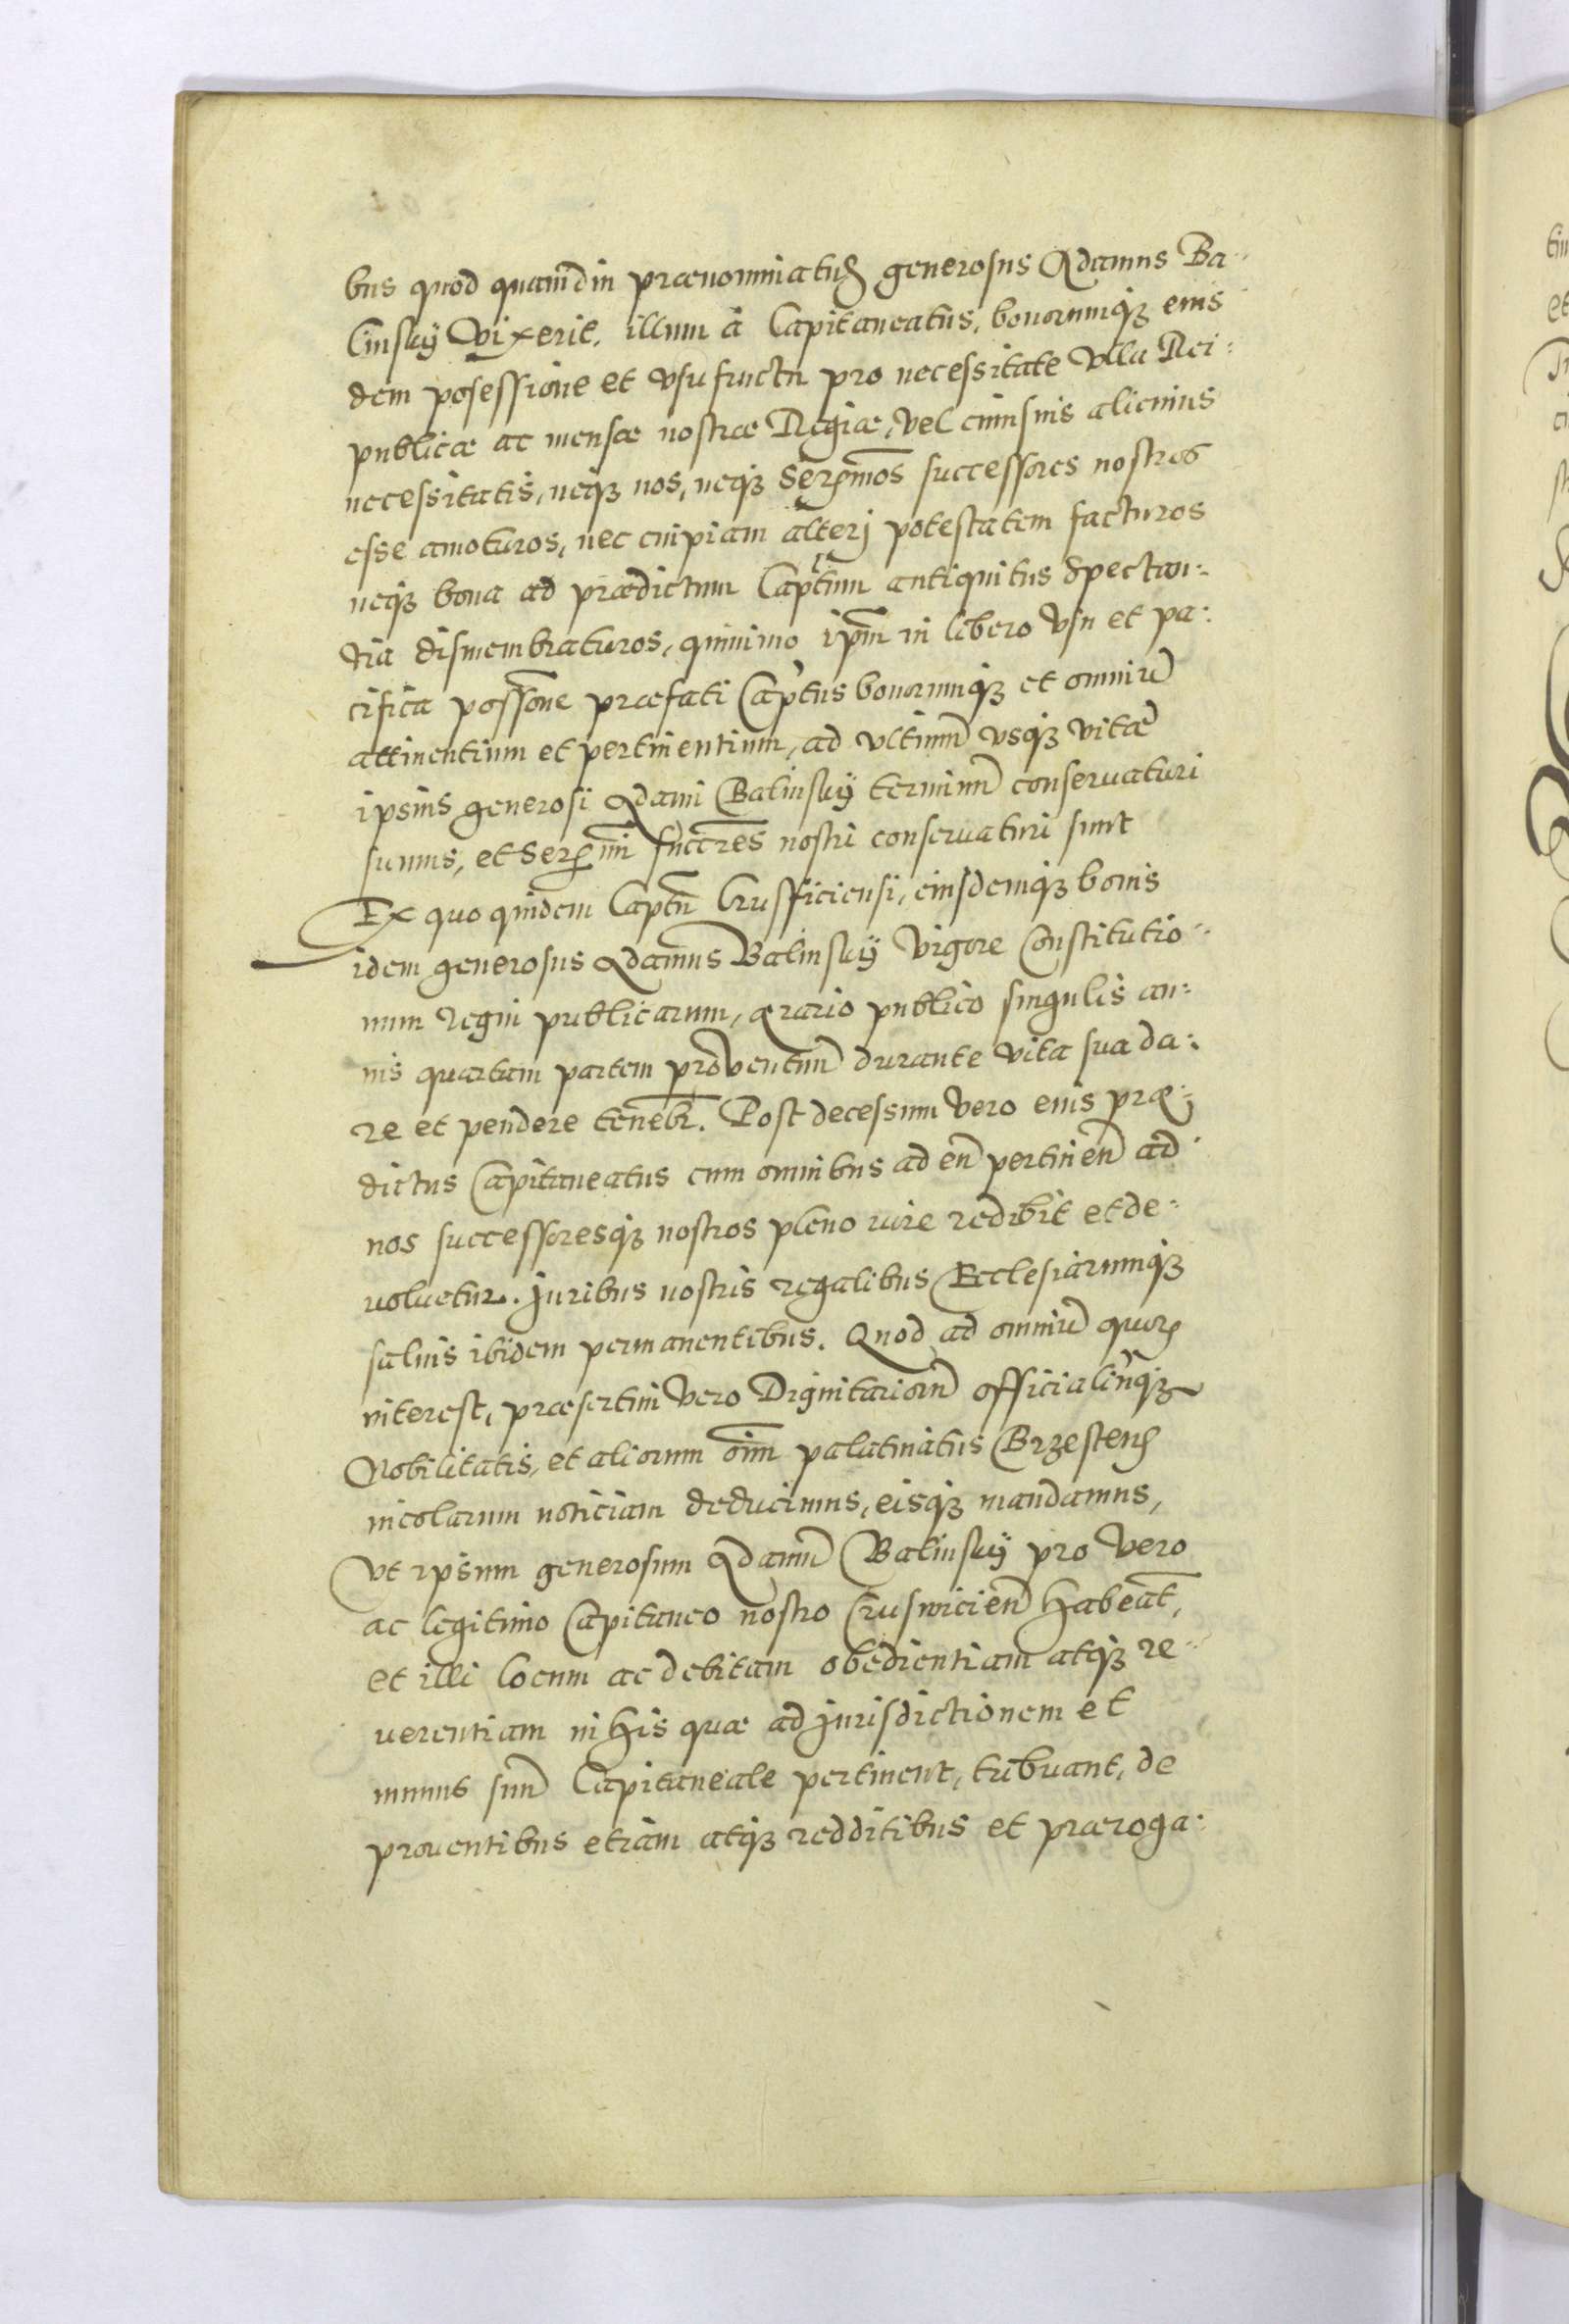 bus quod quamdiu prænominatus generosus Adamus Ba-
linsky vixerit, illum à Capitaneatus, bonorumq3 eius
dem posessione et vsufructu pro necessitate vlla Rei-
publicæ ac mensæ nostræ Regiæ, vel cuiusuis alicuius
necessitatis, neq3 nos, neq3 Serenmos successores nostros
esse amoturos, nec cuipiam alterj potestatem facturos
neq3 bona ad prædictum Captum antiquitus spectan-
tia dismembraturos, quinimo ipm in libero vsu et pa-
cifica possone præfati Captus bonorumq3 et omniu
attinentium et pertinentium, ad vltimu vsq3 vitæ
ipsius generosi Adami Balinsky terminu conseruaturi
sumus, et Serenmi succres nostri conseruaturi sunt
Ex quo quidem Captu Crusficiensi, eiusdemq3 bonis
idem generosus Adamus Balinsky vigore Constitutio-
num regni publicarum, ærario publico singulis an-
nis quartam partem prouentuu durante vita sua da-
re et pendere tenebr. Post decessum vero eius præ-
dictus Capitaneatus cum omnibus ad eu pertinen ad
nos successoresq3 nostros pleno iure redibit et de-
uoluetur. Juribus nostris regalibus Ecclesiarumq3
saluis ibidem permanentibus. Quod ad omniu quor
interest, præsertim vero Dignitarioru officialiuq3
Nobilitatis, et aliorum oim palatinatus Brzesten
incolarum noticiam deducimus, eisq3 mandamus,
Vt ipsum generosum Adamu Balinsky pro vero
ac legitimo Capitaneo nostro Crusvicien habeat,
et illi locum ac debitam obedientiam atq3 re-
uerentiam in his quæ ad jurisdictionem et
munus suu Capitaneale pertinent, tribuant, de
prouentibus etiam atq3 redditibus et præroga-